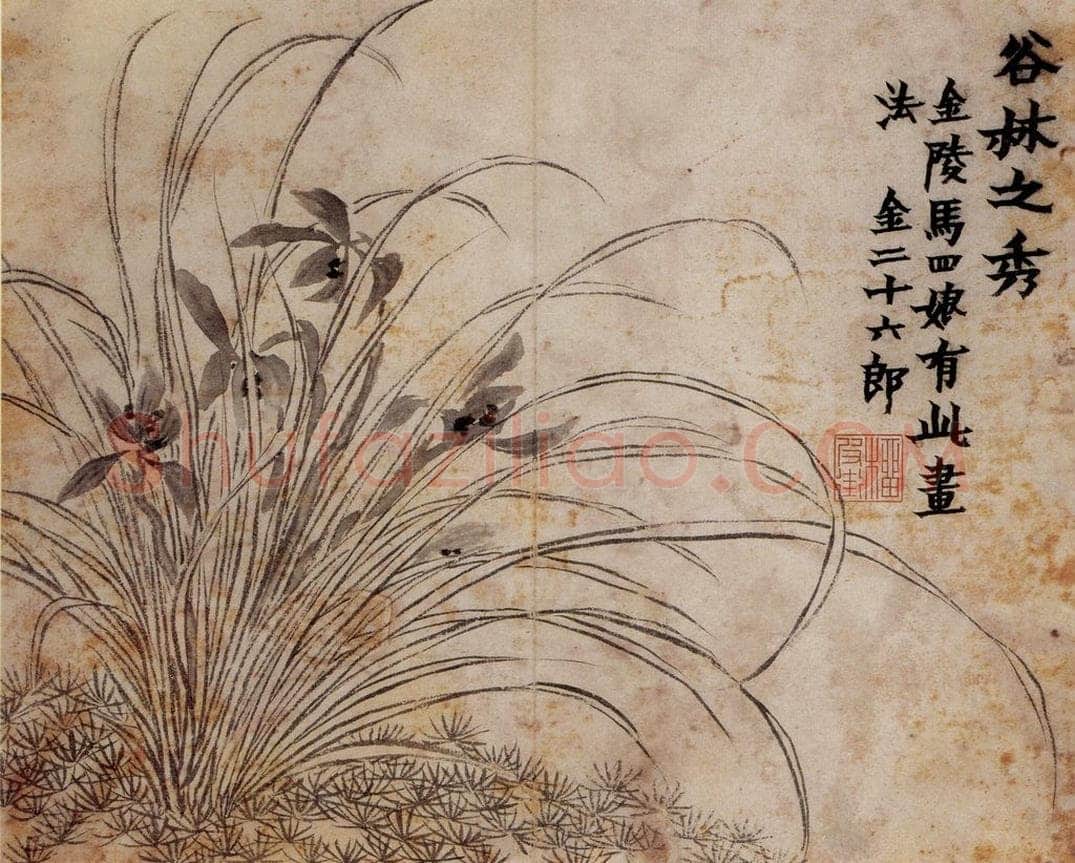 谷林之秀
金陵馬四娘有此畫
法 金二十六郎
shufaziliao.com